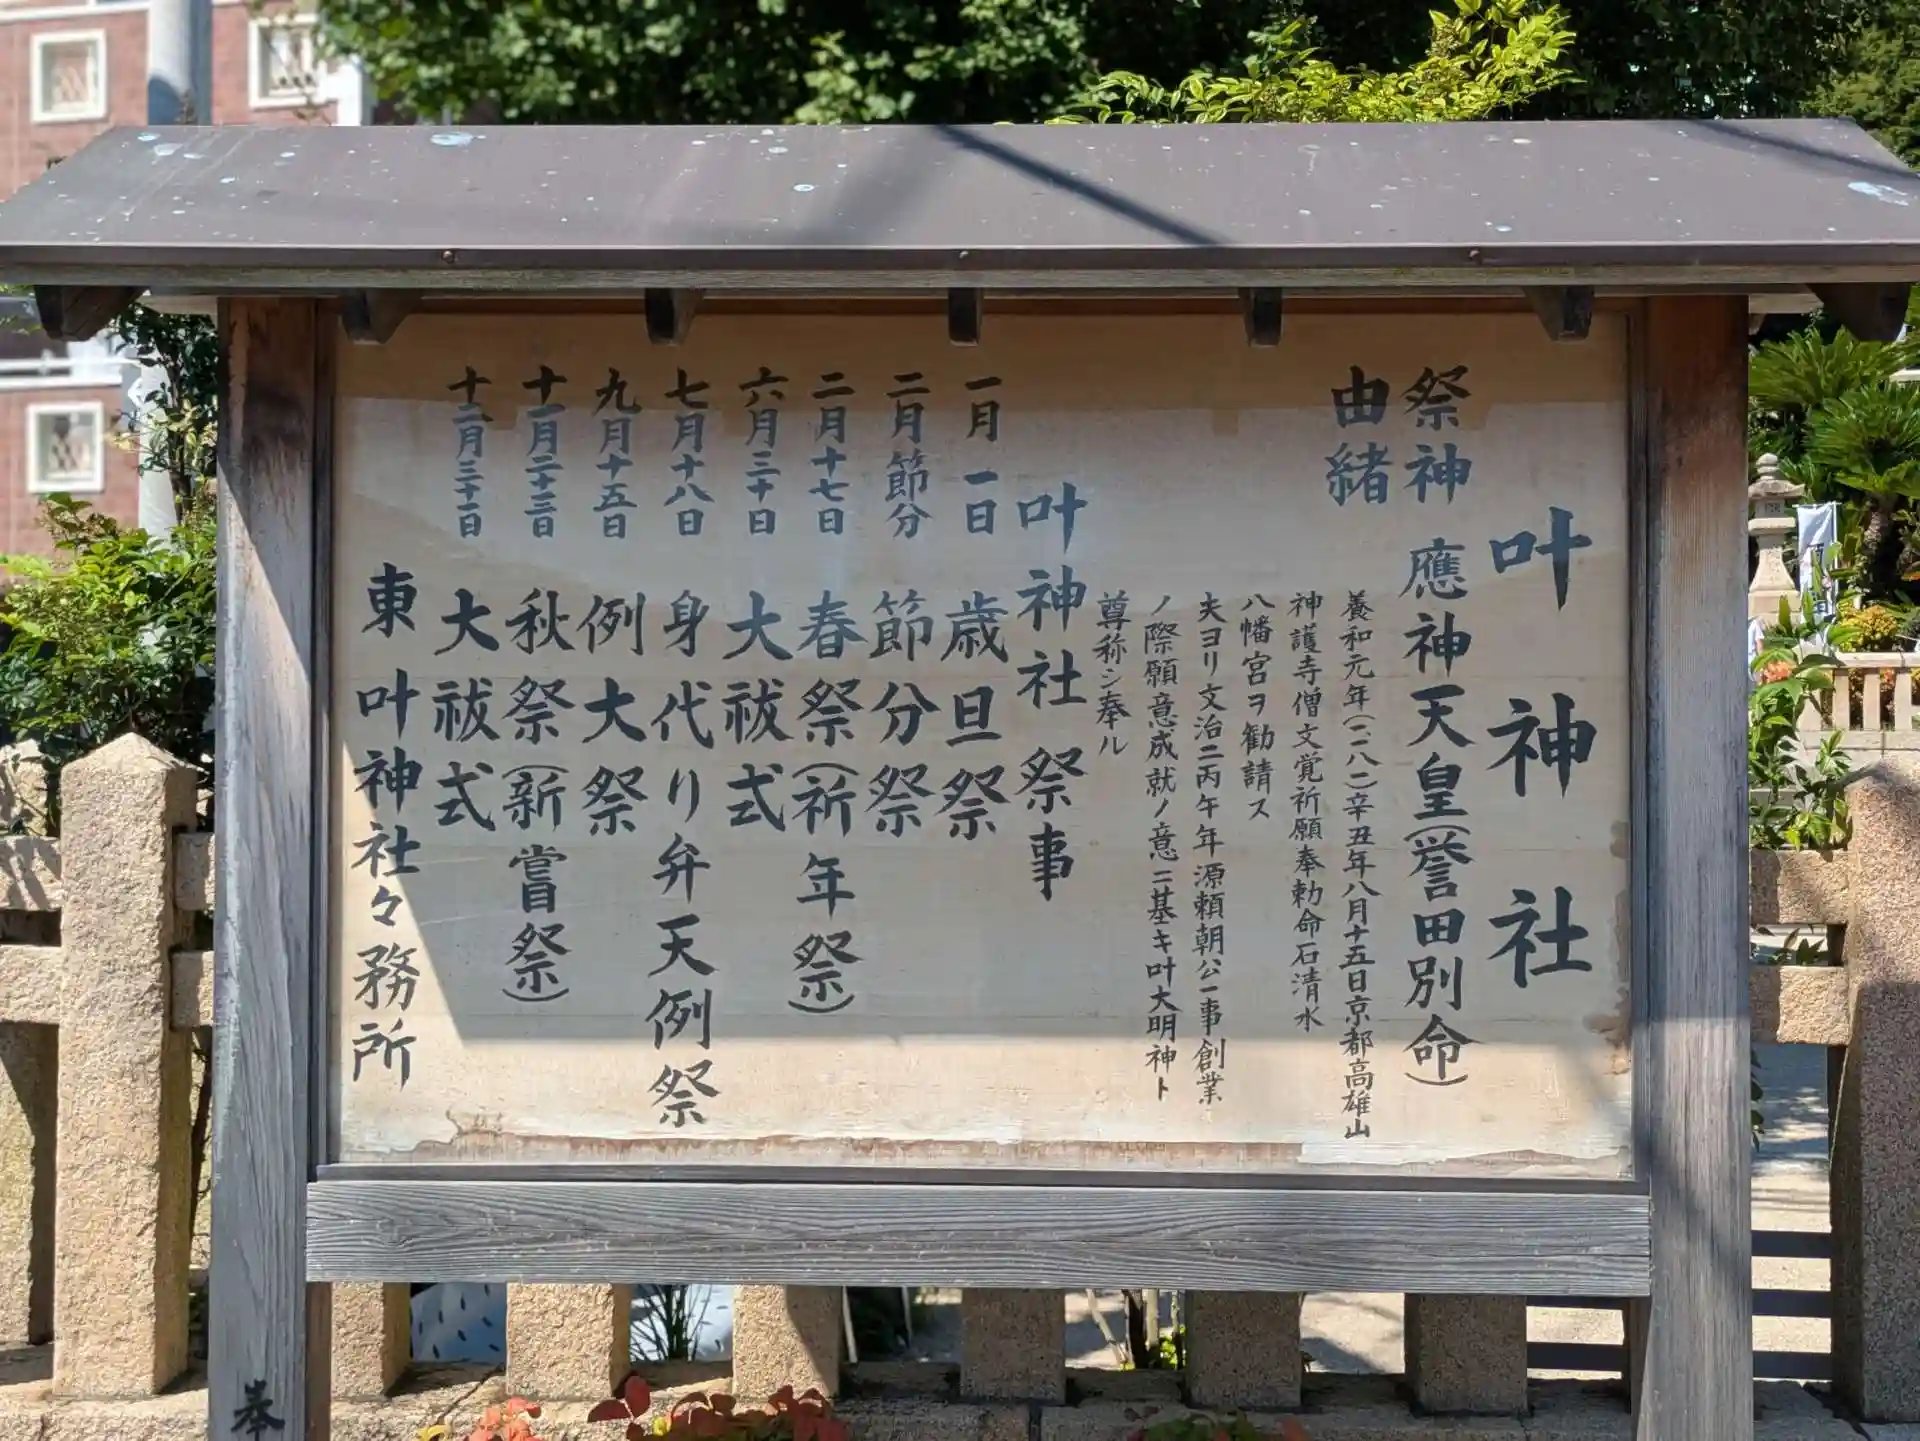 叶神社
祭神 應神天皇(誉田別命)
由緒
養和元年(一一八一)辛丑年八月十五日京都高雄山
神護寺僧文覚祈願奉勅命石清水
八幡宮ヲ勧請ス
夫ヨリ文治二丙午年源頼朝公一事創業
ノ際願意成就ノ意ニ基キ叶大明神ト
尊称シ奉ル
叶神社 祭事
一月一日 歳旦祭
二月節分 節分祭
二月十七日 春祭(祈年祭)
六月三十日 大祓式
七月十八日 身代り弁天例祭
九月十五日 例大祭
十一月二十三日 秋祭(新嘗祭)
十二月三十一日 大祓式
東叶神社々務所
奉